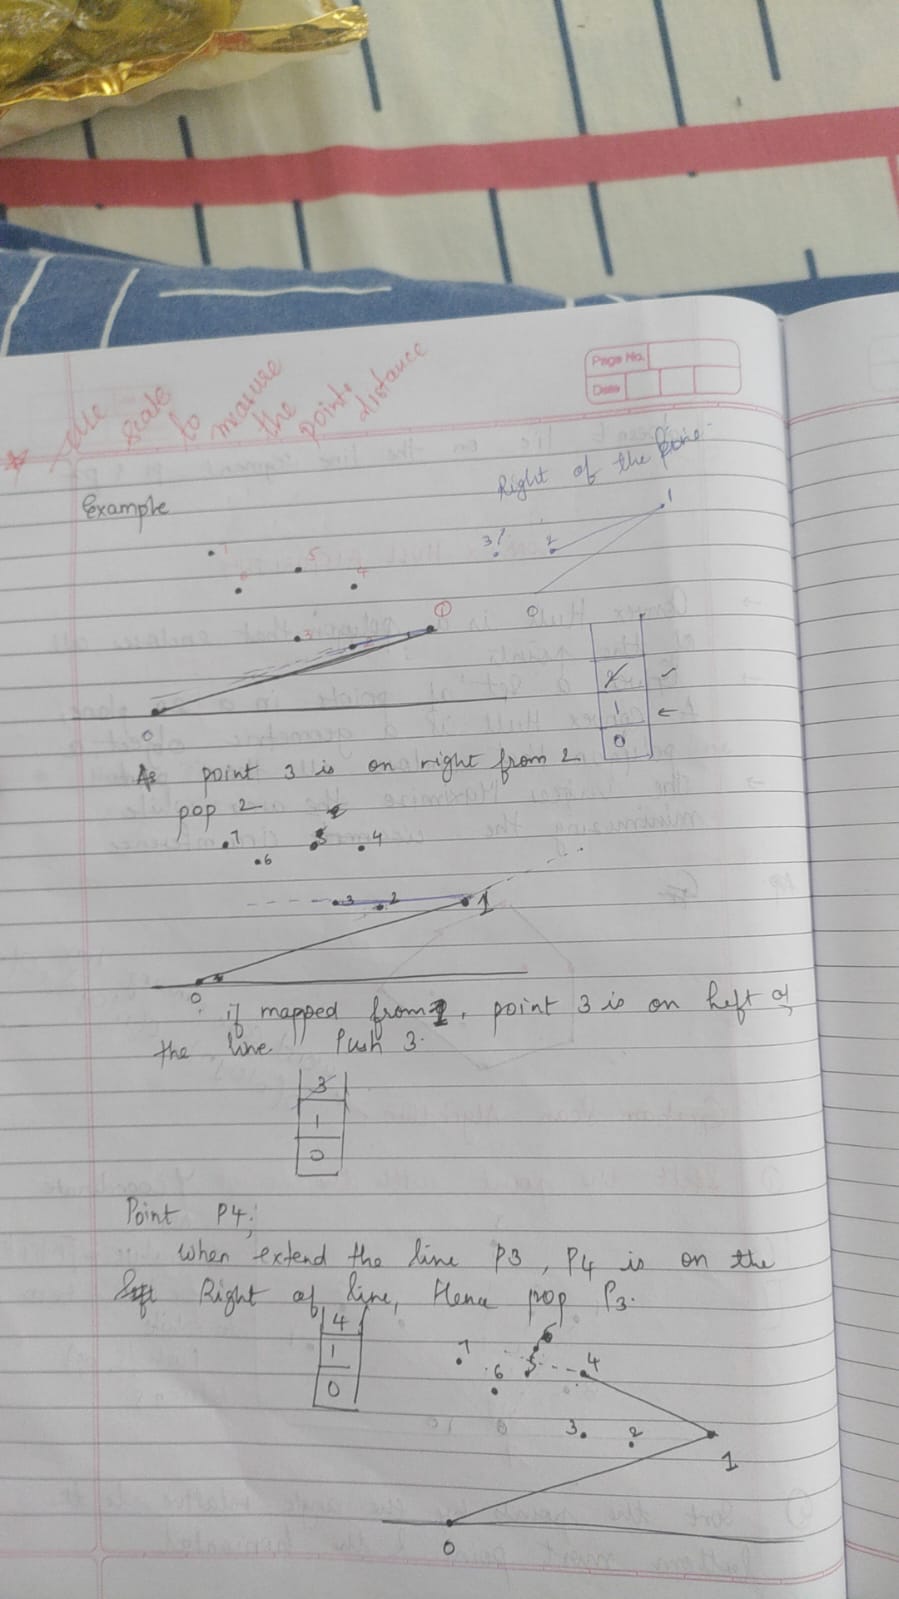 Page No.
Date
* Use scale to measure the points distance
Right of the line.
Example
7
5
6
4
3
2
1
3
2
1
0
0
2
1
0
As point 3 is on right from 2
pop 2
7
6
5
4
3
2
1
0
if mapped from 1, point 3 is on left of
the line Push 3.
3
1
0
Point P4;
When extend the line P3, P4 is on the
left Right of line, Hence pop P3.
4
1
0
7
6
5
4
3.
2
1
0